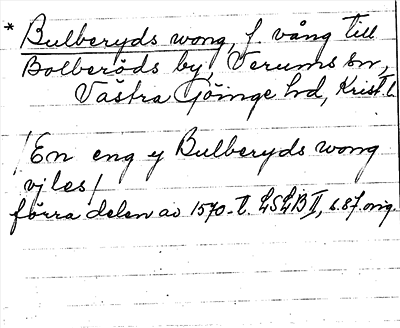 * Bulberyds wong, f. vång till
Bolberöds by, Verums sn,
Västra Göinge hd, Krist. l.
/En eng y Bulberyds wong
vj les/
förra delen av 1570-t. LSLB II, s. 87. orig.